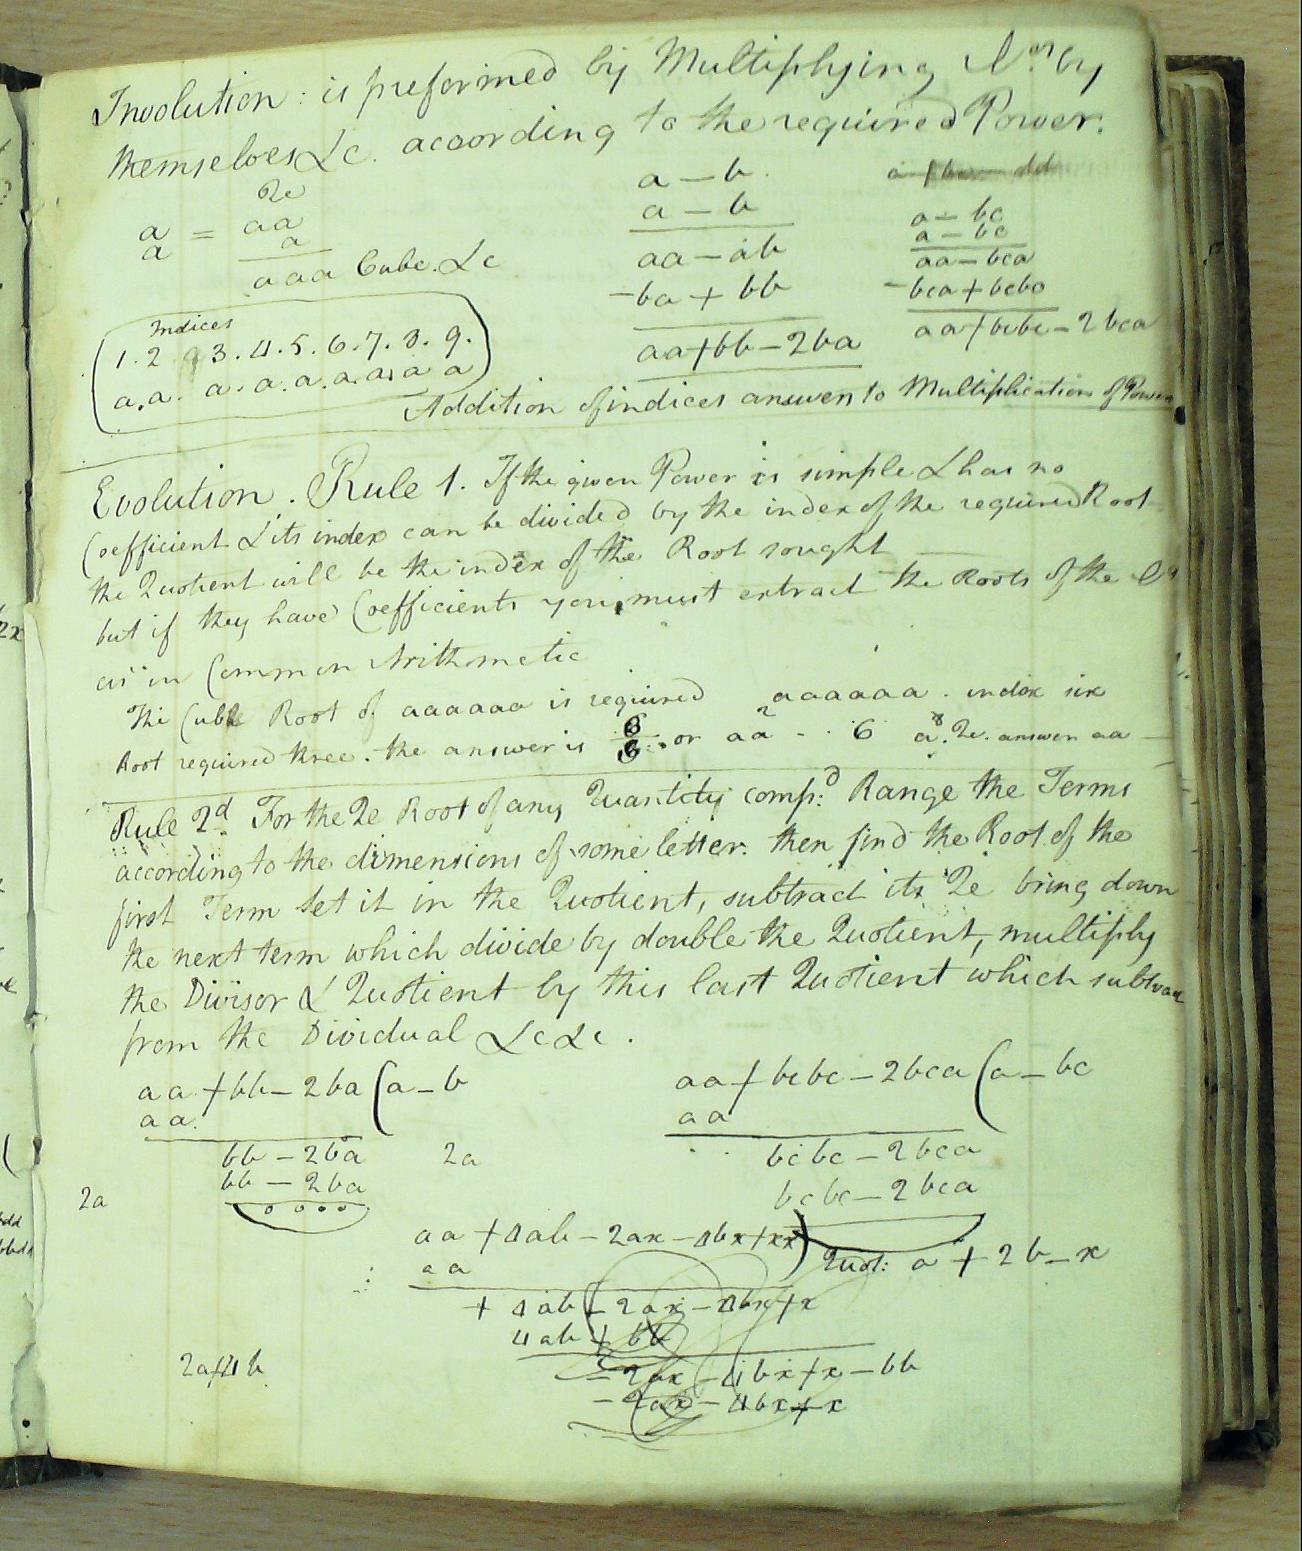 Involution: is preformed by Multiplying Nos by
themselves &c. according to the required Power.
2e
a = aa
a a
aaa Cube. &c
a - b
a - b
aa - ab
-ba + bb
aa+bb-2ba
a - bc
a - bc
aa - bca
-bca + bcbc
aa+bcbc-2bca
Indices
1. 2 3. 4. 5. 6. 7. 8. 9.
a. a. a. a. a. a. a. a a
Addition of indices answers to Multiplication of Powers
Evolution. Rule 1. If the given Power is simple & has no
Coefficient & its index can be divided by the index of the required Root
the Quotient will be the index of the Root sought
but if they have Coefficients you must extract the Roots of the Nos
as in Common Arithmetic
The Cube Root of aaaaaa is required aaaaaa. index six
Root required three. the answer is or aa 6 2e. answer aa
Rule 2d For the 2e Root of any Quantity comp:d Range the Terms
according to the dimensions of some letter. then find the Root of the
first Term Set it in the Quotient, subtract its 2e bring down
the next term which divide by double the Quotient, multiply
the Divisor & Quotient by this last Quotient which subtract
from the Dividual &c &c.
aa + bb - 2ba (a - b
aa
bb - 2ba 2a
2a bb - 2ba
0 0 0 0
aa + bcbc - 2bca (a - bc
aa
bcbc - 2bca
bcbc - 2bca
aa + 4ab - 2ax - 4bx + xx) Quot: a + 2b - x
aa
+ 4ab - 2ax - 4bx + x
4ab + bb
2a+4b - 2ax - 4bx + x - bb
- 2ax - 4bx + x